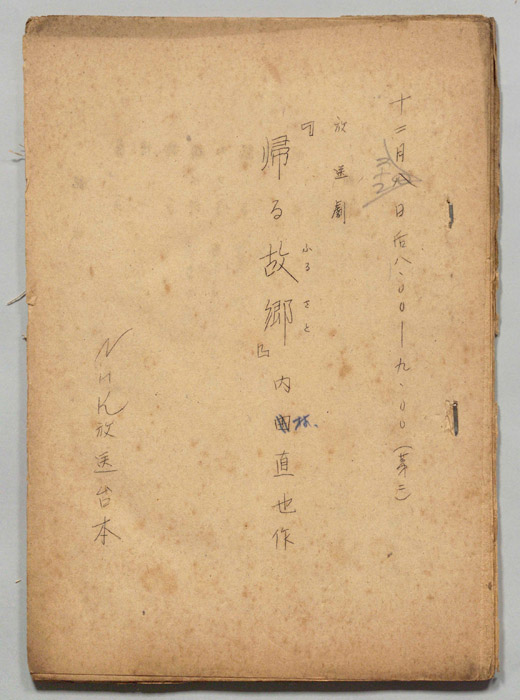 十二月 日后八・〇〇―九・〇〇(第二)
放送劇
『帰る故郷』内村直也作
ふるさと
NHK放送台本